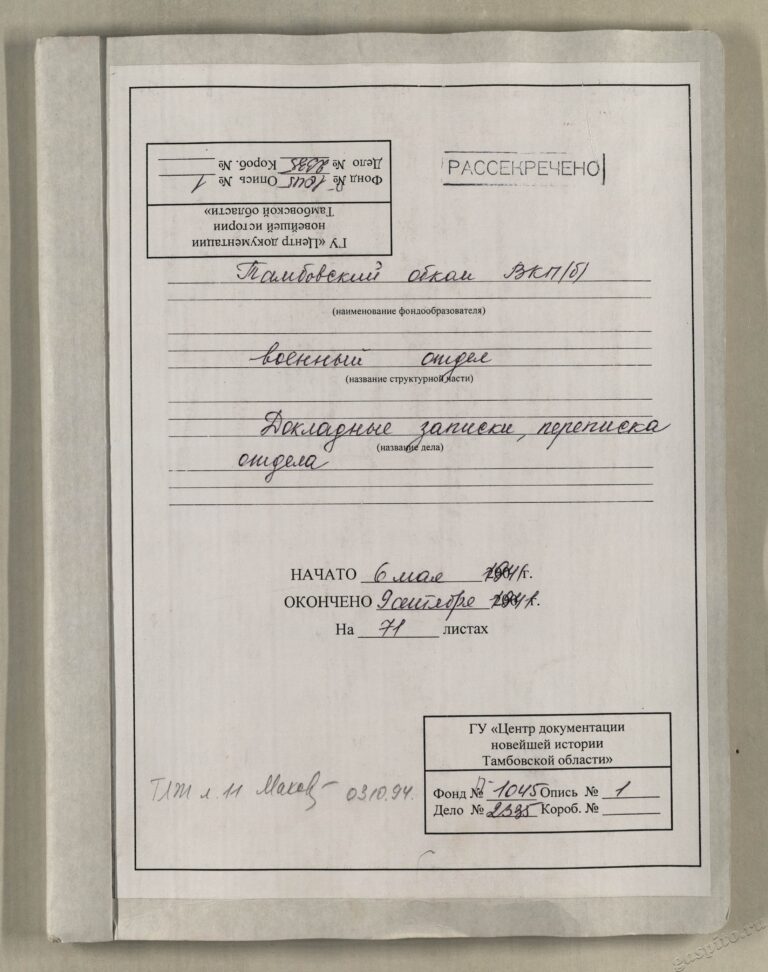 ГУ «Центр документации
новейшей истории
Тамбовской области»
Фонд № П-1045 Опись № 1
Дело № 2335 Короб. №
РАССЕКРЕЧЕНО
Тамбовский обком ВКП(б)
(наименование фондообразователя)
военный отдел
(название структурной части)
Докладные записки, переписка
(название дела)
отдела
НАЧАТО 6 мая 1941 г.
ОКОНЧЕНО 9 сентября 1941 г.
На 71 листах
ГУ «Центр документации
новейшей истории
Тамбовской области»
Фонд № П-1045 Опись № 1
Дело № 2335 Короб. №
03.10.94.
gaspito.ru